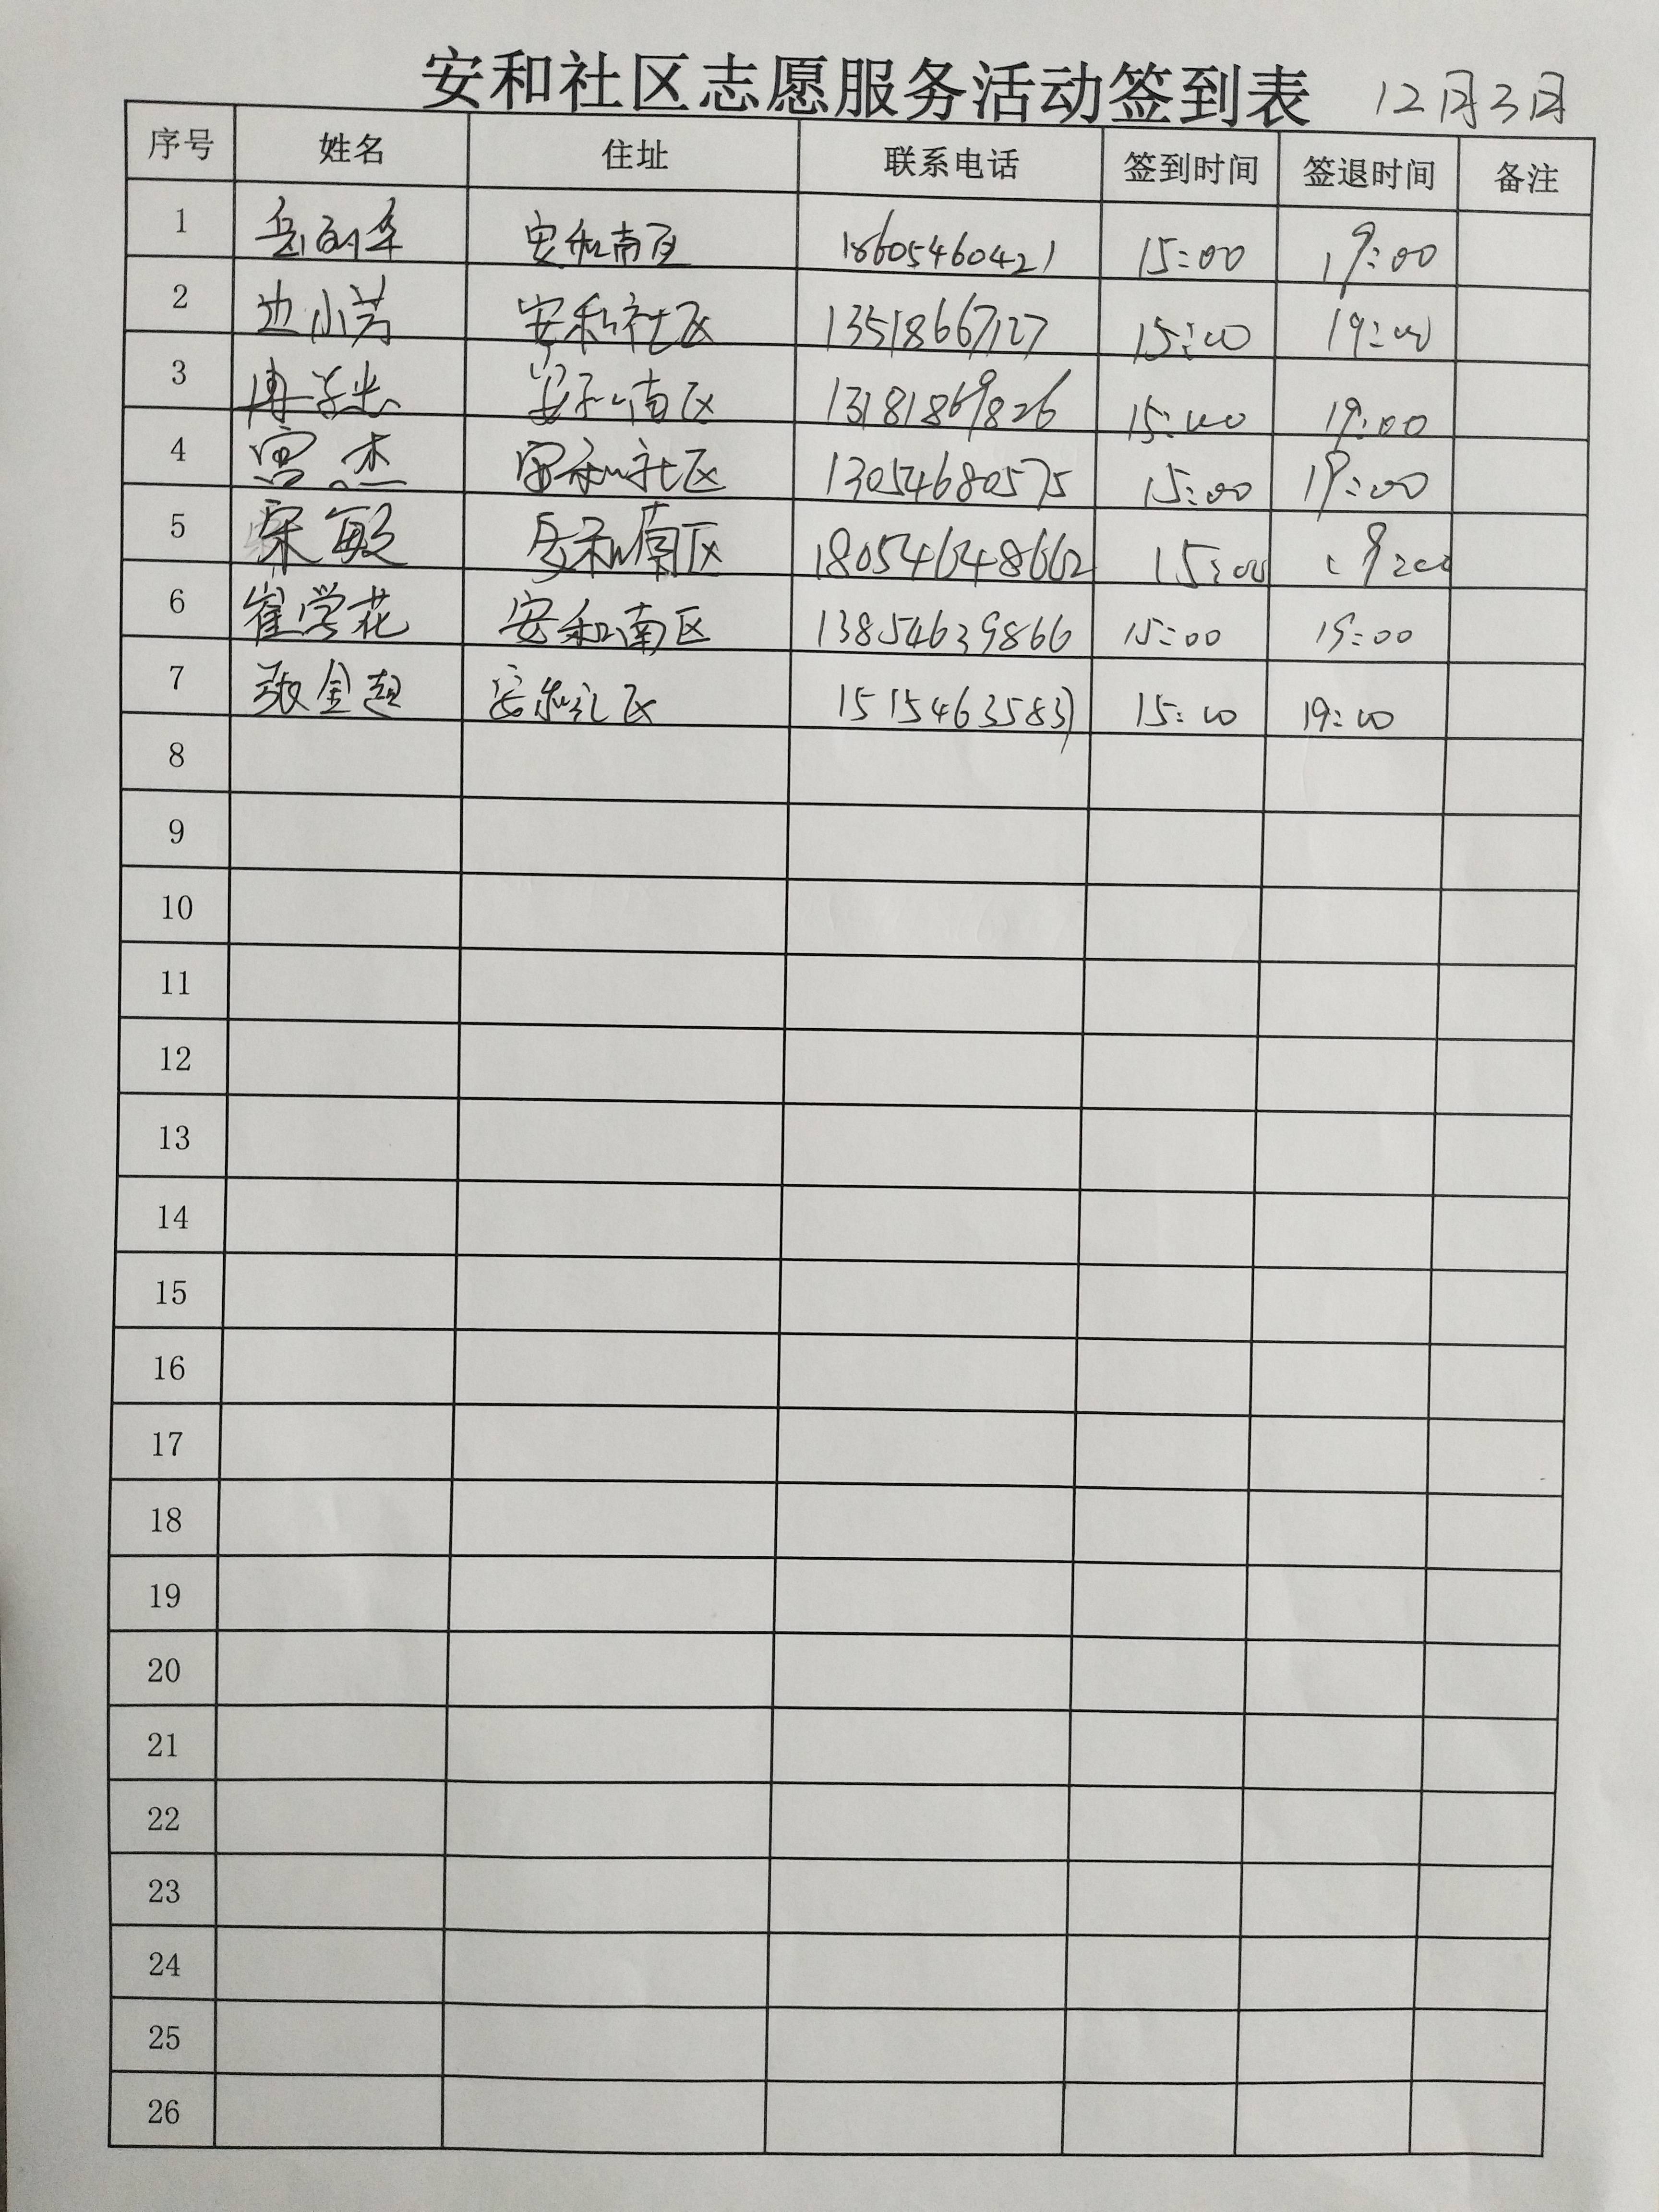 安和社区志愿服务活动签到表 12月3日
序号 姓名 住址 联系电话 签到时间 签退时间 备注
1 安和南区 18605460421 15:00 19:00
2 边小芳 安和社区 13518667127 15:00 19:00
3 安和南区 13181869826 15:00 19:00
4 宫杰 安和社区 13054680575 15:00 19:00
5 宋敏 安和南区 15:00 19:00
6 崔学花 安和南区 13854639866 15:00 19:00
7 张金超 安和社区 15:00 19:00
8
9
10
11
12
13
14
15
16
17
18
19
20
21
22
23
24
25
26